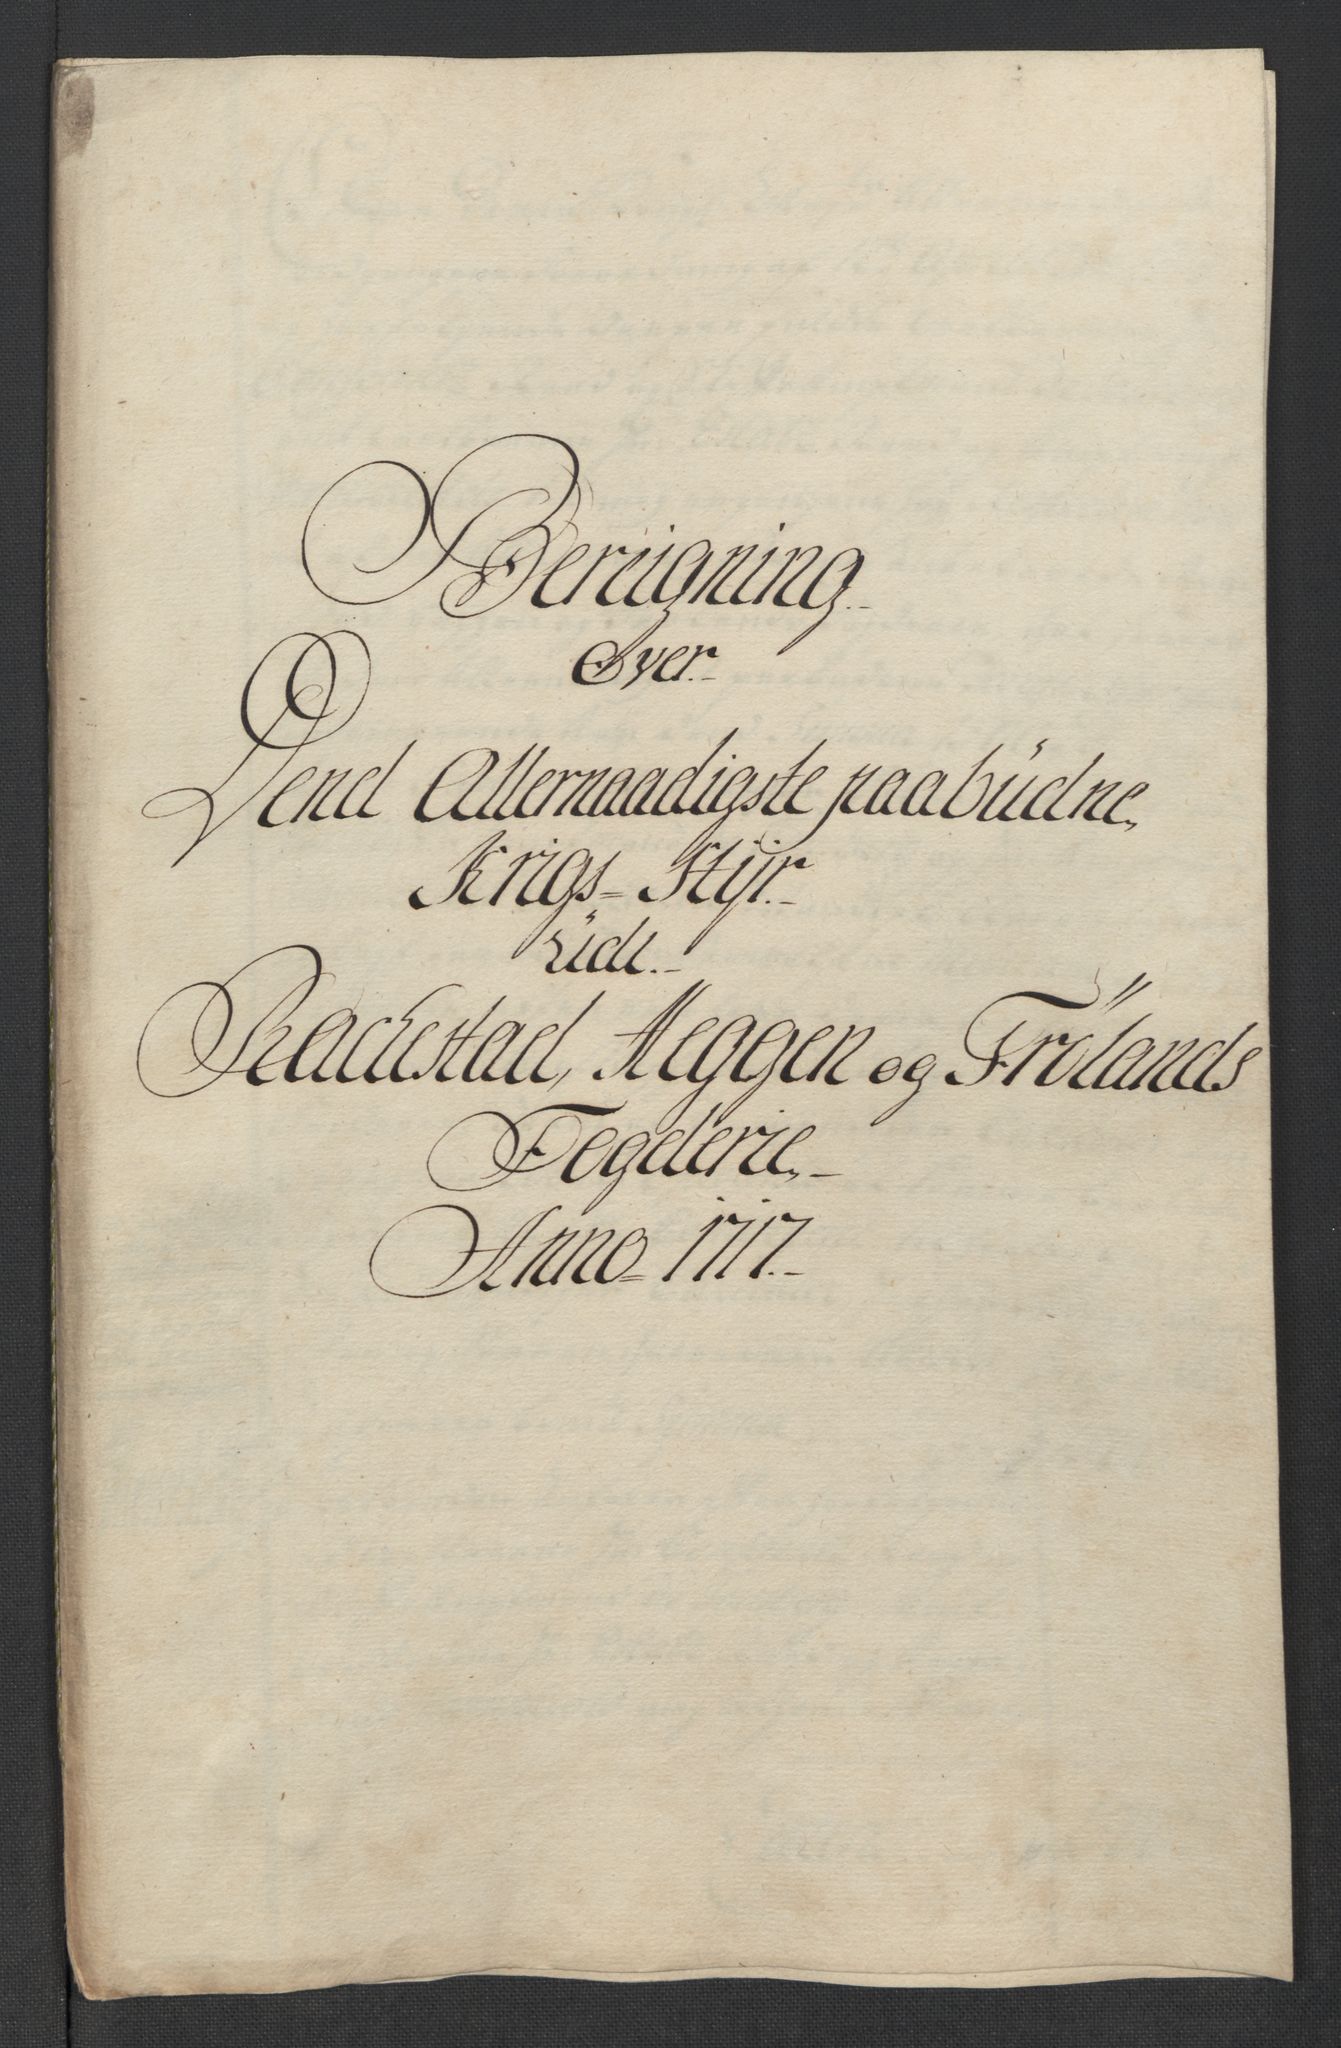 Bereigning
Over
Dend Allernaadigste paabüdne
Krigs-Styr
üdi
Rackestad, Heggen og Frölands
Fogderie
Anno-1717